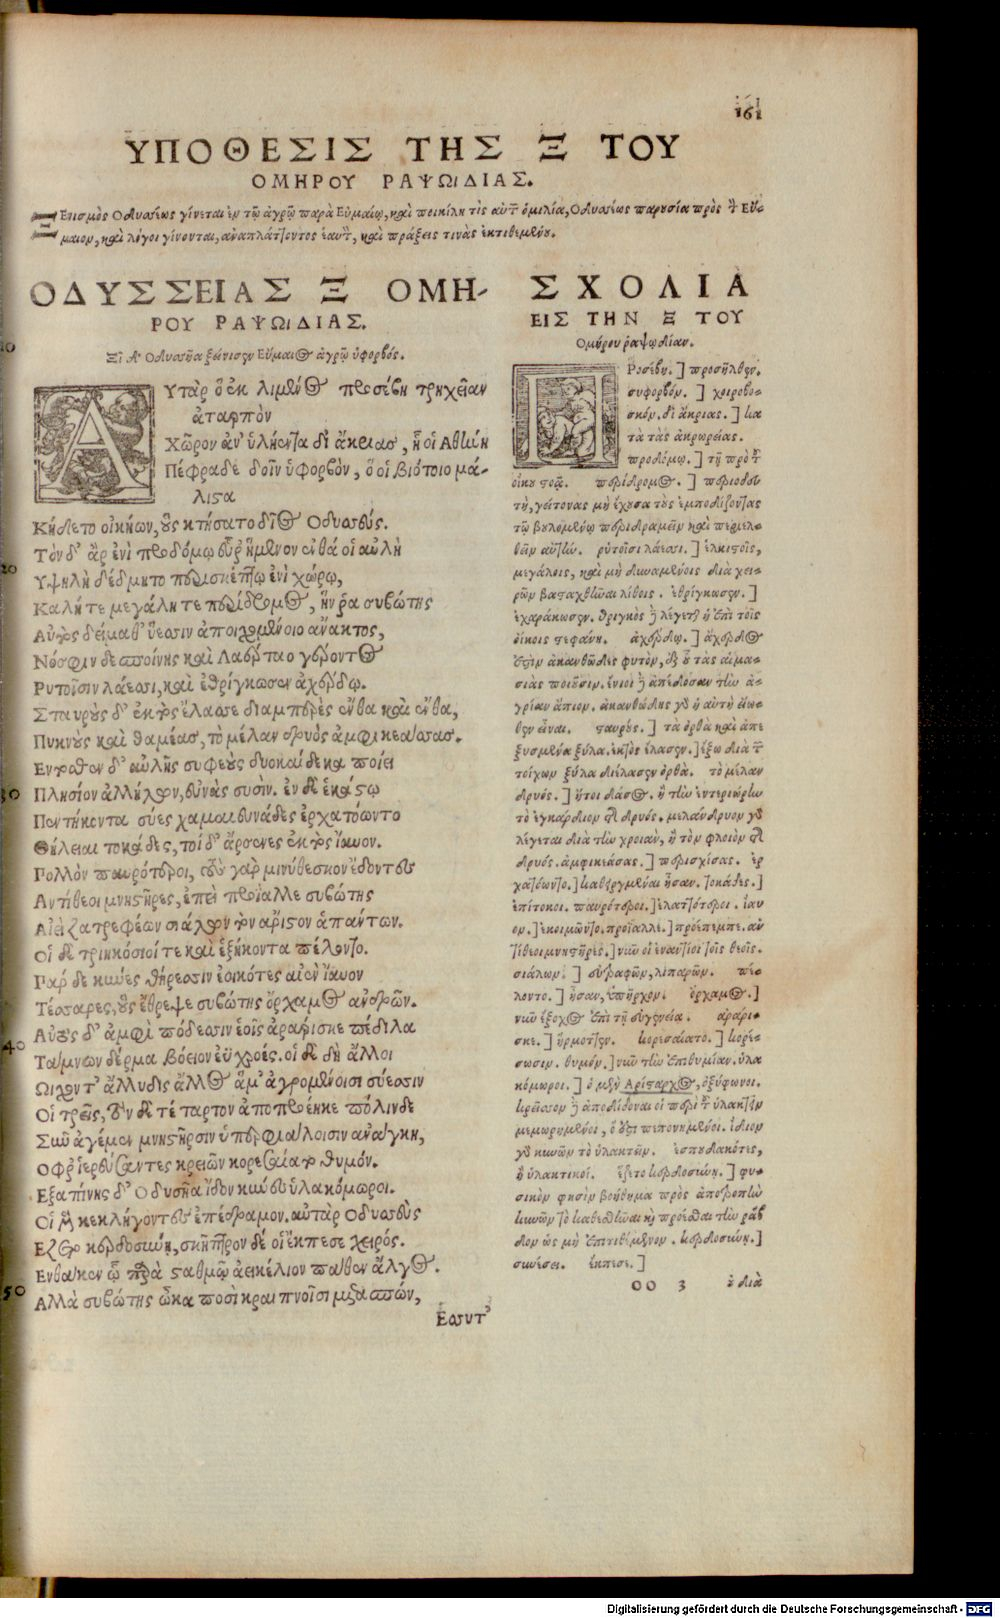 161
ΥΠΟΘΕΣΙΣ ΤΗΣ Ξ ΤΟΥ
ΟΜΗΡΟΥ ΡΑΨΩΙΔΙΑΣ.
Ξενισμὸς Οδυσσέως γίνεται ἐν τῷ ἀγρῷ παρὰ Εὐμαίῳ, καὶ ποικίλη τὶς αὐτῶ ὁμιλία, Οδυσσέως παρουσία πρὸς τὸν Εὔ-
μαιον, καὶ λόγοι γίνονται, ἀναπλάττοντος ἑαυτὸν, καὶ πράξεις τινὰς ἐκτιθεμένου.
ΟΔΥΣΣΕΙΑΣ Ξ ΟΜΗ-
ΡΟΥ ΡΑΨΩΙΔΙΑΣ.
Ξῖ δ' Οδυσσῆα ξείνισεν Εὔμαιος ἀγρῷ ὑφορβός.
Αὐτὰρ ὃ ἐκ λιμένος προσέβη τρηχεῖαν
ἀταρπὸν
Χῶρον ἀν' ὑλήεντα δι' ἄκριας, ᾗ οἱ Αθήνη
Πέφραδε δῖον ὑφορβὸν, ὅ οἱ βιότοιο μά-
λιστα
Κήδετο οἰκήων, οὓς κτήσατο δῖος Οδυσσεύς.
Τὸν δ' ἂρ ἐνὶ προδόμῳ εὗρ' ἥμενον ἔνθά οἱ αὐλὴ
Υψηλὴ δέδμητο περισκέπτῳ ἐνὶ χώρῳ,
Καλή τε μεγάλη τε περίδρομος, ἥν ῥα συβώτης
Αὐτὸς δείμαθ' ὕεσσιν ἀποιχομένοιο ἄνακτος,
Νόσφιν δεσποίνης καὶ Λαέρταο γέροντος
Ρυτοῖσιν λάεσσι, καὶ ἐθρίγκωσεν ἀχέρδῳ.
Σταυροὺς δ' ἐκτὸς ἔλασσε διαμπερὲς ἔνθα καὶ ἔνθα,
Πυκνοὺς καὶ θαμέας, τὸ μέλαν δρυὸς ἀμφικεάσσας.
Εντοσθεν δ' αὐλῆς συφεοὺς δυοκαίδεκα ποίει
Πλησίον ἀλλήλων, εὐνὰς συσίν. ἐν δὲ ἑκάστῳ
Πεντήκοντα σύες χαμαιευνάδες ἐρχατόωντο
Θήλειαι τοκάδες, τοὶ δ' ἄρσενες ἐκτὸς ἴαυον.
Πολλὸν παυρότεροι, τοὺς γὰρ μινύθεσκον ἔδοντες
Αντίθεοι μνηστῆρες, ἐπεὶ προΐαλλε συβώτης
Αἰεὶ ζατρεφέων σιάλων τὸν ἄριστον ἁπάντων.
Οἱ δὲ τριηκόσιοί τε καὶ ἑξήκοντα πέλοντο.
Παρ δὲ κύνες θήρεσσιν ἐοικότες αἰὲν ἴαυον
Τέσσαρες, οὓς ἔθρεψε συβώτης ὄρχαμος ἀνδρῶν.
Αὐτὸς δ' ἀμφὶ πόδεσσιν ἑοῖς ἀράρισκε πέδιλα
Τάμνων δέρμα βόειον ἐϋχροές. οἱ δὲ δὴ ἄλλοι
Ωιχοντ' ἄλλυδις ἄλλος ἅμ' ἀγρομένοισι σύεσσιν
Οἱ τρεῖς, τὸν δὲ τέταρτον ἀποπροέηκε πόλινδε
Σῦν ἀγέμεν μνηστῆρσιν ὑπερφιάλοισιν ἀνάγκῃ,
Οφρ' ἱερεύσαντες κρειῶν κορεσαίατο θυμόν.
Εξαπίνης δ' Οδυσῆα ἴδον κύνες ὑλακόμωροι.
Οἱ μὲν κεκλήγοντες ἐπέδραμον. αὐτὰρ Οδυσσεὺς
Εζετο κερδοσύνῃ, σκῆπτρον δέ οἱ ἔκπεσε χειρός.
Ενθά κεν ᾧ παρὰ σταθμῷ ἀεικέλιον πάθεν ἄλγος.
Αλλὰ συβώτης ὦκα ποσὶ κραιπνοῖσι μετασπών,
Εσσυτ'
ΣΧΟΛΙΑ
ΕΙΣ ΤΗΝ Ξ ΤΟΥ
Ομήρου ῥαψῳδίαν.
Προσέβη.] προσῆλθεν.
συφορβόν.] χοιροβο-
σκόν. δι' ἄκριας.] κα
τὰ τὰς ἀκρωρείας.
προδόμῳ.] τῇ πρὸ τοῦ
οἴκου στοᾷ. περίδρομος.] περιοδευ
τὴ, γείτονας μὴ ἔχουσα τοὺς ἐμποδίζοντας
τῷ βουλομένῳ περιδραμεῖν καὶ περιελ-
θεῖν αὐτήν. ῥυτοῖσι λάεσσι.] ἑλκιστοῖς,
μεγάλοις, καὶ μὴ δυναμένοις διὰ χει-
ρῶν βασταχθῆναι λίθοις. ἐθρίγκωσεν.]
ἐχαράκωσεν. θριγκὸς δὲ λέγεται ἡ ἐπὶ τοῖς
οἴκοις στεφάνη. ἀχέρδῳ.] ἄχερδος
ἐστὶν ἀκανθῶδες φυτὸν, ἐξ οὗ τὰς αἱμα-
σιὰς ποιοῦσιν. ἔνιοι δὲ ἀπέδοσαν τὴν ἀ-
γρίαν ἄπιον. ἀκανθώδης γὰρ ἡ αὐτὴ εἴω-
θεν εἶναι. σταυροὺς.] τὰ ὀρθὰ καὶ ἀπε
ξυσμένα ξύλα. ἐκτὸς ἔλασσεν.] ἔξω διὰ τῶν
τοίχων ξύλα διήλασεν ὀρθά. τὸ μέλαν
δρυός.] ἤτοι δάσος. ἢ τὴν ἐντεριώνην
τὸ ἐγκάρδιον τῆς δρυός. μελάνδρυον γὰρ
λέγεται διὰ τὴν χροιὰν, ἢ τὸν φλοιὸν τῆς
δρυός. ἀμφικεάσας.] περισχίσας. ἐρ
χατόωντο.] καθειργμέναι ἦσαν. τοκάδες.]
ἐπίτοκοι. παυρότεροι.] ἐλαττότεροι. ἴαυ
ον.] ἐκοιμῶντο. προΐαλλε.] προέπεμπε. ἀν
τίθεοι μνηστῆρες.] νῦν οἱ ἐναντίοι τοῖς θεοῖς.
σιάλων.] εὐτραφῶν, λιπαρῶν. πέ-
λοντο.] ἦσαν, ὑπῆρχον. ὄρχαμος.]
νῦν ἔξοχος ἐπὶ τῇ εὐγενείᾳ. ἀράρι-
σκε.] ἥρμοττεν. κορεσαίατο.] κορέ-
σωσιν. θυμόν.] νῦν τὴν ἐπιθυμίαν. ὑλα
κόμωροι.] ὁ μὲν Αρίσταρχος, ὀξύφωνοι.
κρεῖσσον δὲ ἀποδίδοναι οἱ περὶ τὸ ὑλακτεῖν
μεμορημένοι, ὅ ἐστι πεπονημένοι. ἴδιον
γὰρ κυνῶν τὸ ὑλακτεῖν. ἐσπουδακότες,
ἢ ὑλακτικοί. ἕζετο κερδοσύνῃ.] φυ-
σικὸν φησὶν βοήθημα πρὸς ἀποτροπὴν
κυνῶν τὸ καθεσθῆναι καὶ προέσθαι τὴν ῥάβ
δον ὡς μὴ ἐπιτιθέμενον. κερδοσύνῃ.]
συνέσει. ἔκπεσε.]
οο 3 ἐ διὰ
10
20
30
40
50
Digitalisierung gefördert durch die Deutsche Forschungsgemeinschaft - DFG